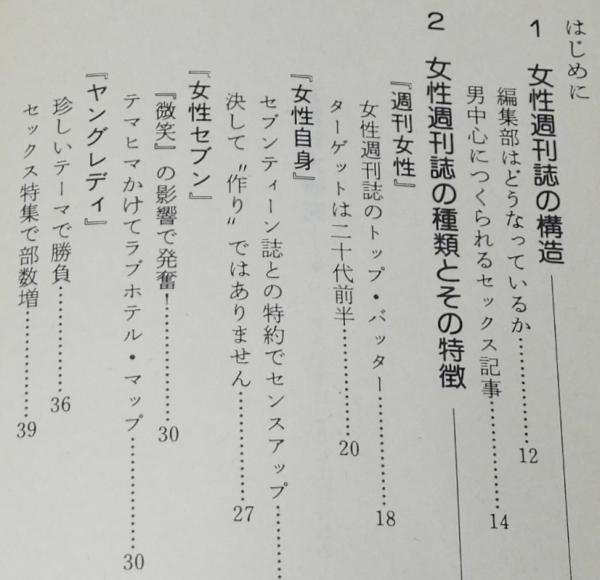 はじめに
1 女性週刊誌の構造
編集部はどうなっているか……………12
男中心につくられるセックス記事……………14
2 女性週刊誌の種類とその特徴
『週刊女性』
女性週刊誌のトップ・バッター……………18
ターゲットは二十代前半……………20
『女性自身』
セブンティーン誌との特約でセンスアップ……………
決して〝作り〟ではありません……………27
『女性セブン』
『微笑』の影響で発奮!……………30
テマヒマかけてラブホテル・マップ……………30
『ヤングレディ』
珍しいテーマで勝負……………36
セックス特集で部数増……………39